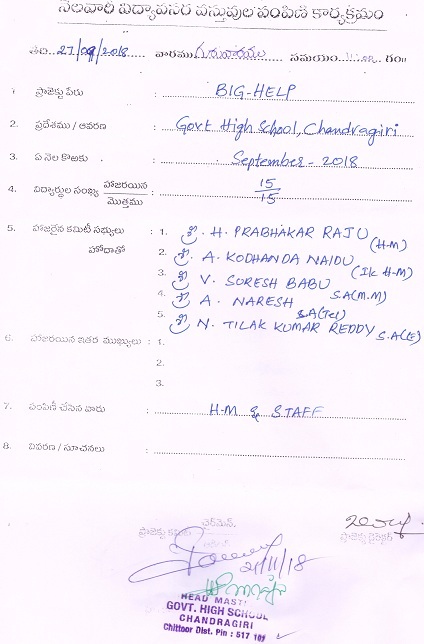 నెలవారీ విద్యావసర వస్తువుల పంపిణీ కార్యక్రమం
తేది 27/09/2018 వారము గురువారము సమయం గం॥
1 ప్రాజెక్టు పేరు : BIG-HELP
2. ప్రదేశము / ఆవరణ : Govt High School, Chandragiri
3. ఏ నెల కొఱకు : September - 2018
4. విద్యార్థుల సంఖ్య హాజరయిన / మొత్తము : 15/15
5. హాజరైన కమిటీ సభ్యులు : 1. శ్రీ. H. PRABHAKAR RAJU (H-M)
హోదాతో 2. శ్రీ. A. KODHANDA NAIDU (I/c H-M)
3. శ్రీ V. SURESH BABU S.A(M.M)
4. శ్రీ A. NARESH S.A(Tel)
5. శ్రీ N. TILAK KUMAR REDDY S.A(E)
6. హాజరయిన ఇతర ముఖ్యులు : 1.
2.
3.
7. పంపిణీ చేసిన వారు : H-M & STAFF
8. వివరణ / సూచనలు :
ఛైర్మెన్,
ప్రాజెక్టు కమిటీ ప్రాజెక్టు డైరెక్టర్
21/11/18
HEAD MAST
GOVT. HIGH SCHOOL
CHANDRAGIRI
Chittoor Dist. Pin : 517 101